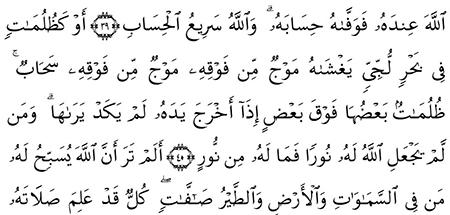 ٱللَّهَ عِندَهُۥ فَوَفَّىٰهُ حِسَابَهُۥ ۗ وَٱللَّهُ سَرِيعُ ٱلْحِسَابِ ﴿٣٩﴾ أَوْ كَظُلُمَـٰتٍ
فِى بَحْرٍ لُّجِّىٍّ يَغْشَىٰهُ مَوْجٌ مِّن فَوْقِهِۦ مَوْجٌ مِّن فَوْقِهِۦ سَحَابٌ ۚ
ظُلُمَـٰتٌۢ بَعْضُهَا فَوْقَ بَعْضٍ إِذَآ أَخْرَجَ يَدَهُۥ لَمْ يَكَدْ يَرَىٰهَا ۗ وَمَن
لَّمْ يَجْعَلِ ٱللَّهُ لَهُۥ نُورًا فَمَا لَهُۥ مِن نُّورٍ ﴿٤٠﴾ أَلَمْ تَرَ أَنَّ ٱللَّهَ يُسَبِّحُ لَهُۥ
مَن فِى ٱلسَّمَـٰوَٰتِ وَٱلْأَرْضِ وَٱلطَّيْرُ صَـٰٓفَّـٰتٍ ۖ كُلٌّ قَدْ عَلِمَ صَلَاتَهُۥ